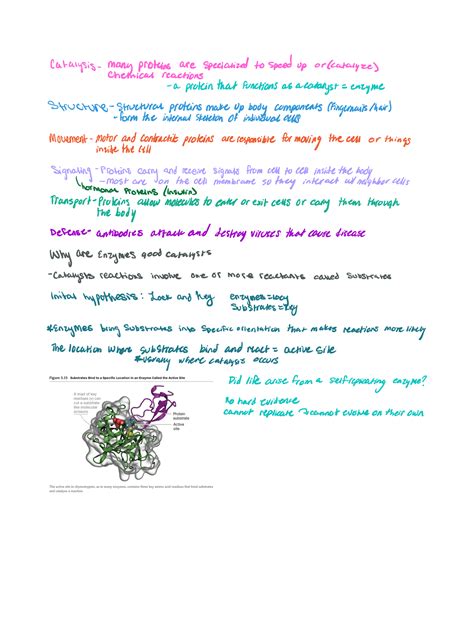 Catalysis - many proteins are specialized to speed up or (catalyze)
chemical reactions
- a protein that functions as a catalyst = enzyme
Structure - Structural proteins make up body components (Fingernails/hair)
- form the internal skeleton of individual cells
Movement - motor and contractile proteins are responsible for moving the cell or things
inside the cell
Signaling - Proteins carry and receive signals from cell to cell inside the body
- most are on the cell membrane so they interact w/ neighbor cells
hormonal Proteins (Insulin)
Transport - Proteins allow molecules to enter or exit cells or carry them through
the body
Defense - antibodies attack and destroy viruses that cause disease
Why are Enzymes good catalysts
- Catalysts reactions involve one or more reactants called substrates
Initial hypothesis: Lock and Key enzymes = lock
Substrates = Key
*Enzymes bring Substrates into specific orientation that makes reactions more likely
The location where substrates bind and react = active site
*usually where catalysis occurs
Figure 3.15 Substrates Bind to a Specific Location in an Enzyme Called the Active Site
Protein
substrate
Active
site
Did life arise from a self replicating enzyme?
no hard evidence
cannot replicate → cannot evolve on their own